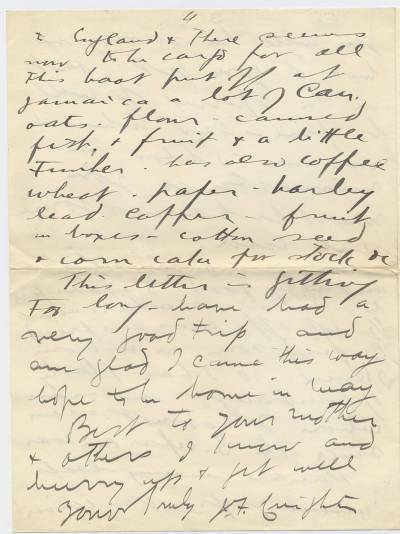 4
to England & there seems
now to be cargo for all
This boat put off at
Jamaica a lot of Can.
oats - flour - canned
fish, & fruit & a little
Timber. has also coffee
wheat - paper - barley
lead copper - fruit
in boxes - cotton seed
& corn cake for stock &c
This letter is getting
Too long - have had a
very good trip and
am glad I came this way
hope to be home in May
Best to your mother
& others I know and
hurry up & get well
Yours truly